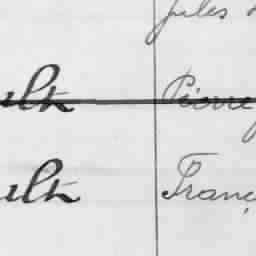 Jules
ult Pierre
ult Franç